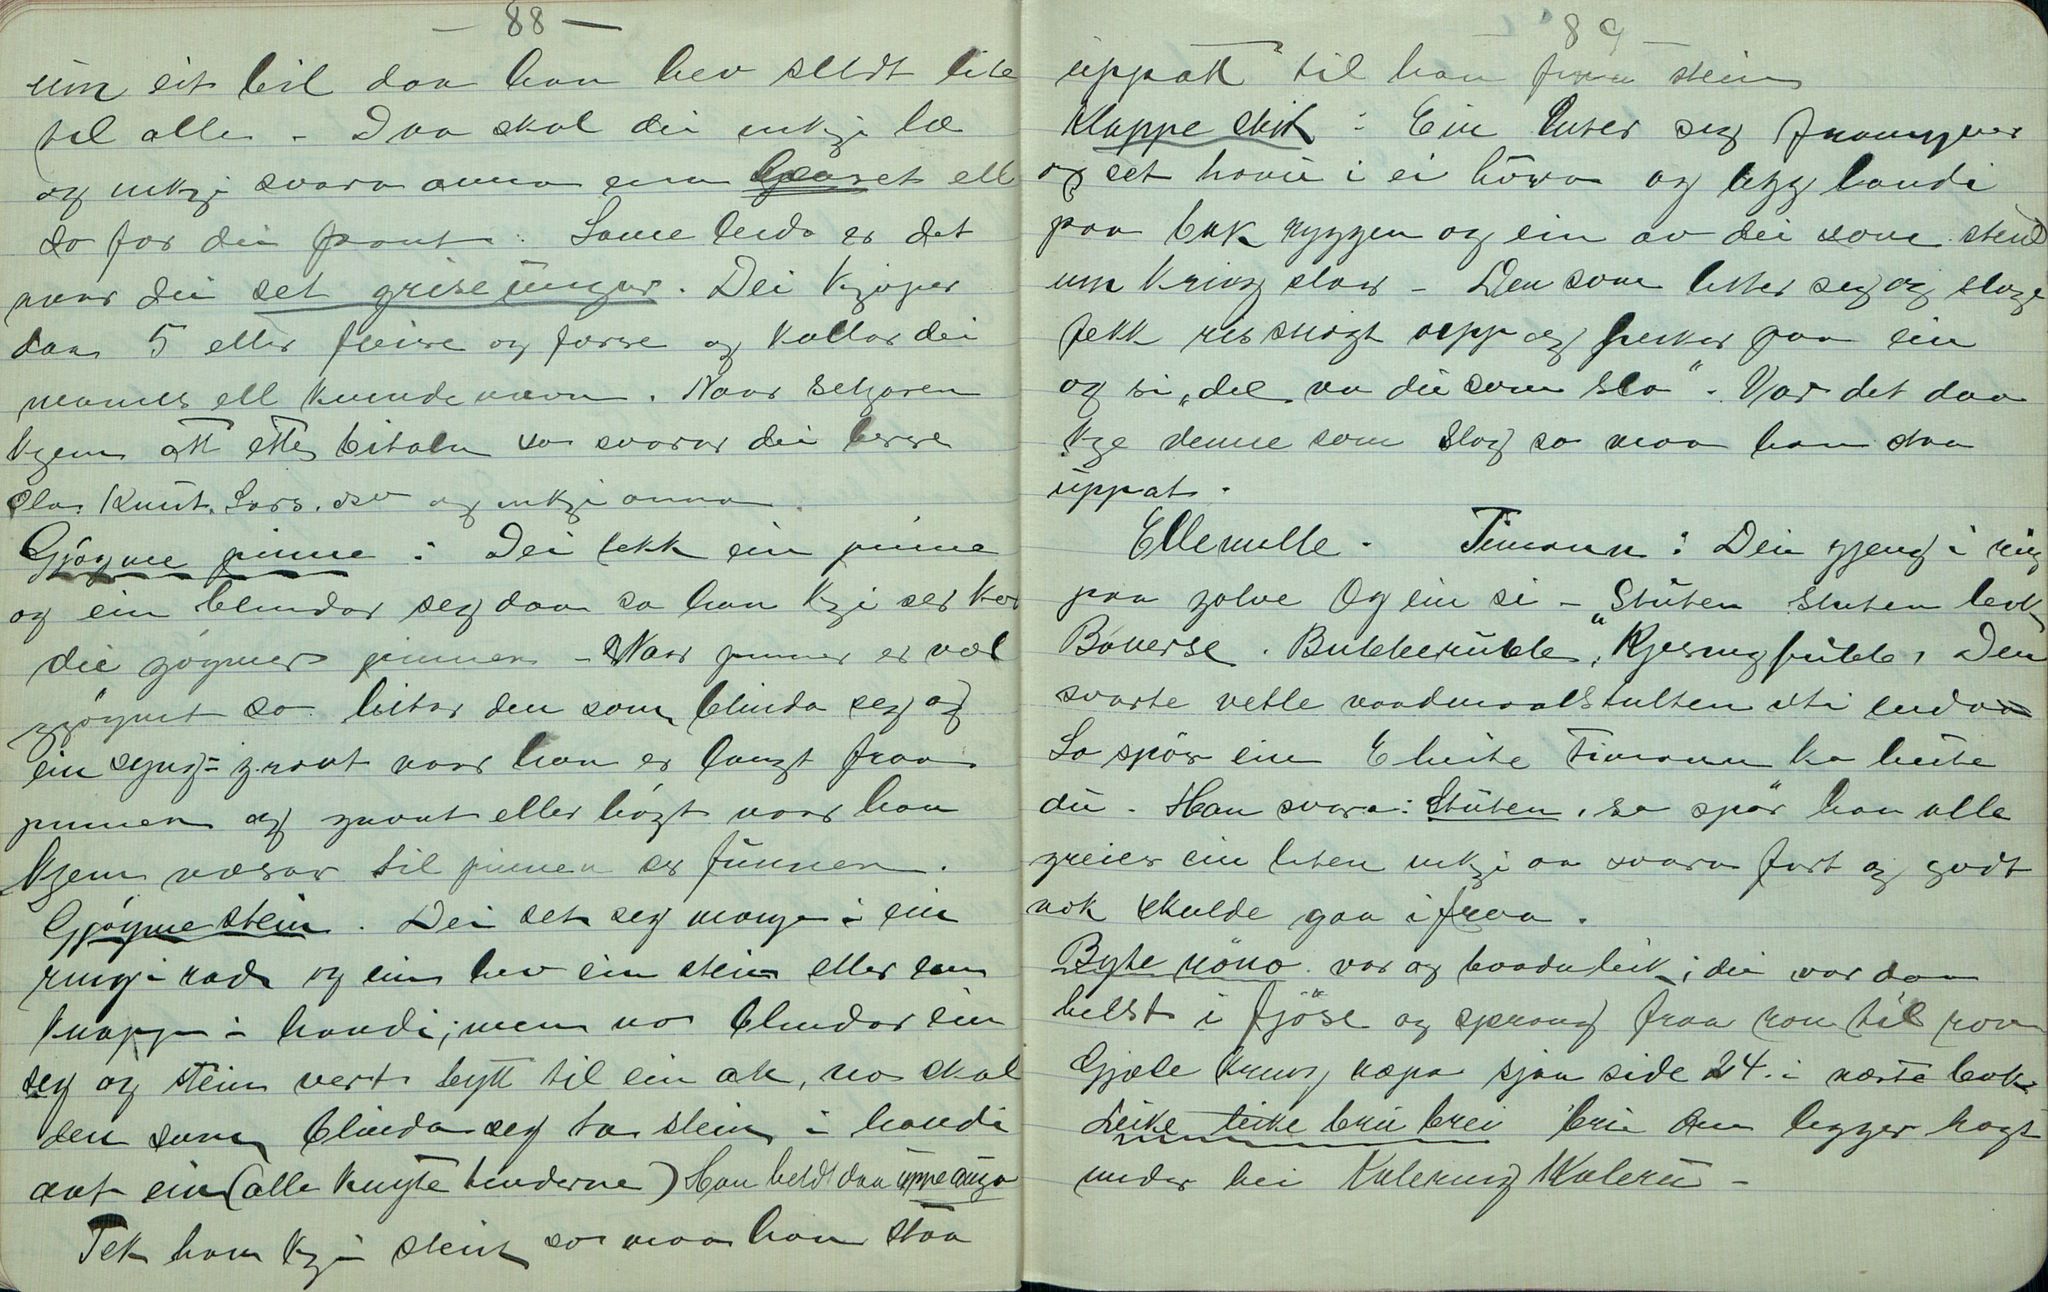 — 88 —
um eit bil daa han hev seldt lite
til alle. – Daa skal dei inkje læ
og inkje svara anna enn graset ell
so far dei pant. Same leida er det
naar dei set griseungar. Dei kjøper
daa 5 eller fleire og færre og kallar dei
manns ell kvindenavn. Naar seljaren
kjem att etter bitaln so svarar dei berre
Ola, Knut, Lars, osv og inkje anna
Gjøyme pinne : Dei tekk ein pinne
og ein blindar seg daa so han kje ser kor
dei gøymer pinnen – Naar pinnen er vel
gjøymt so leitar den som blinda seg og
ein syng = grovt naar han er langt fraa
pinnen og grant eller høgt naar han
kjem nærar til pinnen er funnen.
Gjøyme stein. Dei set seg mange i ein
ring i rad og ein hev ein stein eller ein
knapp i handi; men no blindar ein
seg og stein vert bytt til ein ak, no skal
den som blinda seg ta stein i handi
aat ein (alle knyte henderne) Han heldt daa uppe auga
Tek han kje steint so maa han staa
89
uppatt til han finn stein
Klappe skit : Ein luter seg framyver
og set hovu i ei høva og legg handi
paa bak ryggen og ein av dei som stend
um kring slaar – Den som letter seg og slage
fekk ris snøgt upp og peikar paa ein
og si „de va du som slo". Var det daa
kje denne som slog so maa han staa
uppat.
Ellemelle. Timann : Dei gjeng i ring
paa golve Og ein si – „Stuten Stuten leik
Bøverse. Bukkerukke, Kjeringfukke, Den
svarte vetle vadmaalstulten uti enda
So spør ein E heite Timann ka heite
du. Han svara: Stuten, so spør han alle
greier ein liten inkje aa svara fort og godt
nok skulde gaa ifraa.
Byte rono var og baadn leik; dei var daa
helst i fjøse og sprang fraa ron til ron
Gjæle kring næpa sjaa side 24. i næste bok
Leike leike bru brei bru den legger høgt
under hei Kulerug Kuleru –